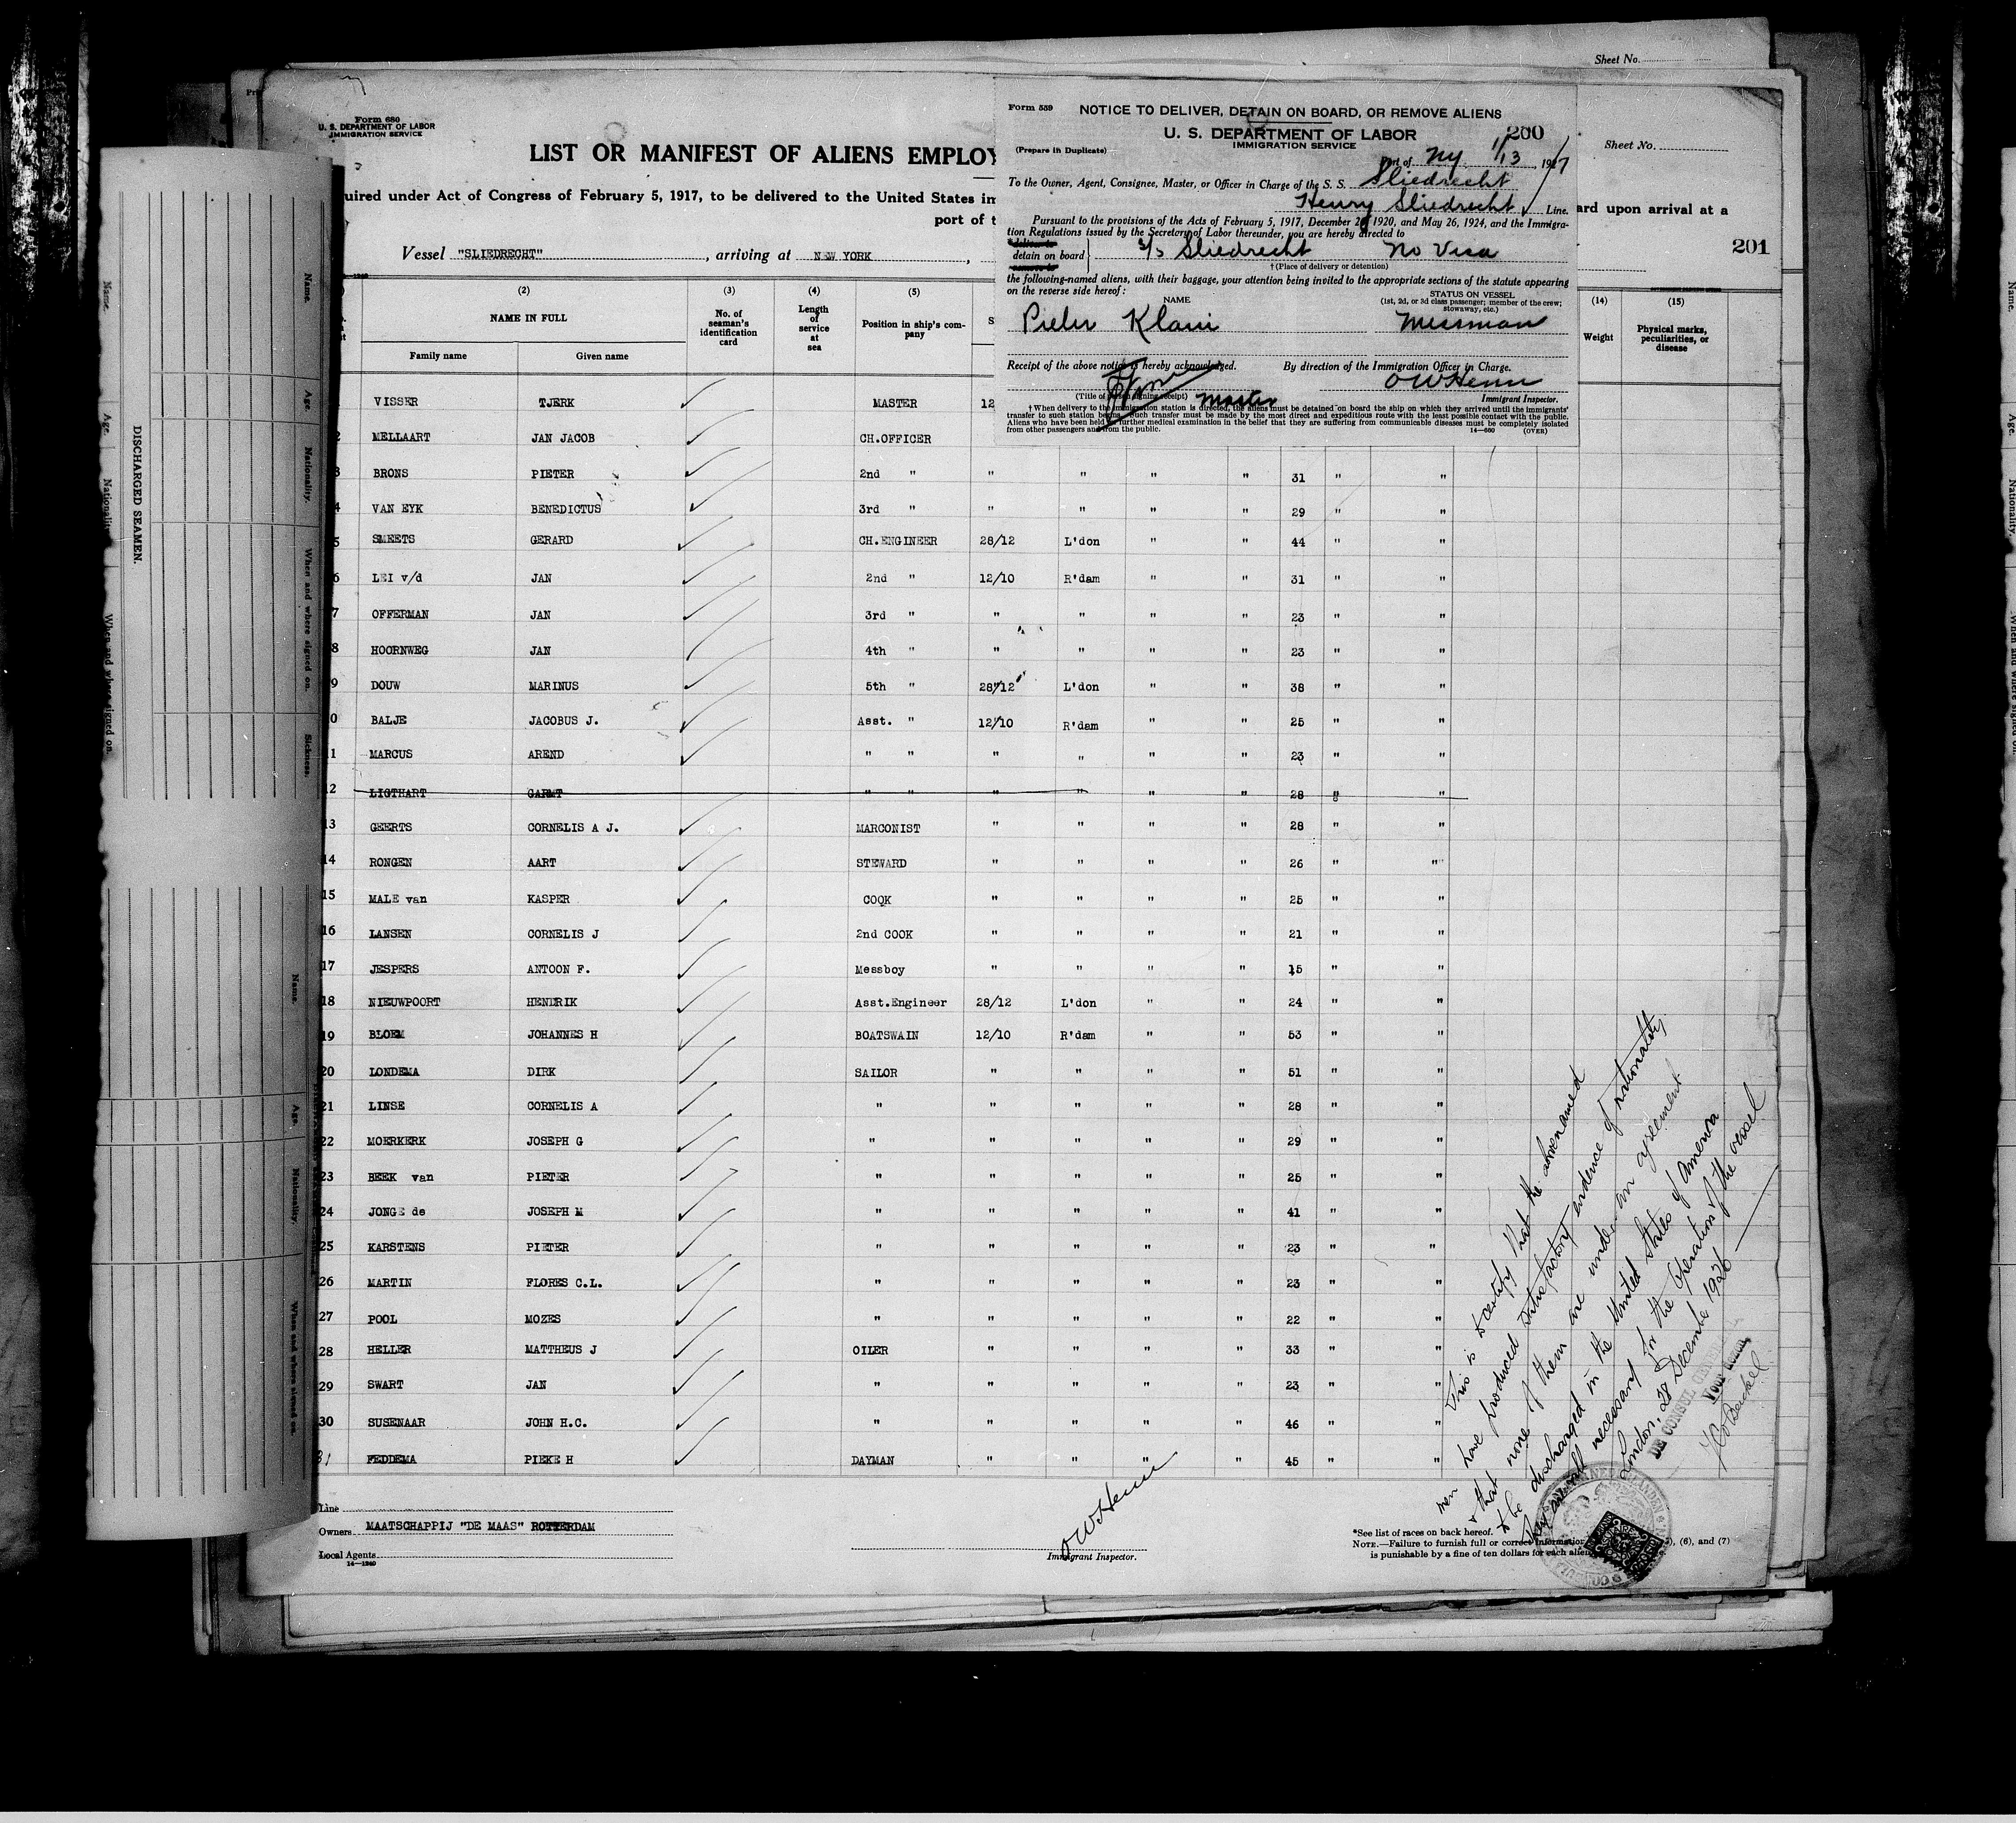 Sheet No.
Form 680
U. S. DEPARTMENT OF LABOR
IMMIGRATION SERVICE
LIST OR MANIFEST OF ALIENS EMPLOY
uired under Act of Congress of February 5, 1917, to be delivered to the United States im
port of t
Vessel "SLIEDRECHT", arriving at NEW YORK,
Form 559
NOTICE TO DELIVER, DETAIN ON BOARD, OR REMOVE ALIENS
U. S. DEPARTMENT OF LABOR
IMMIGRATION SERVICE
200
(Prepare in Duplicate)
Port of NY 1/13, 1927
To the Owner, Agent, Consignee, Master, or Officer in Charge of the S. S. Sliedrecht
Henry Sliedrecht Line.
Pursuant to the provisions of the Acts of February 5, 1917, December 26, 1920, and May 26, 1924, and the Immigra-
tion Regulations issued by the Secretary of Labor thereunder, you are hereby directed to
deliver to
detain on board
remove to
S/S Sliedrecht No Visa
† (Place of delivery or detention)
the following-named aliens, with their baggage, your attention being invited to the appropriate sections of the statute appearing
on the reverse side hereof:
NAME
STATUS ON VESSEL
(1st, 2d, or 3d class passenger; member of the crew;
stowaway, etc.)
Pieter Messman
Receipt of the above notice is hereby acknowledged.
By direction of the Immigration Officer in Charge.
OWHenn
(Title of person signing receipt) Master
Immigrant Inspector.
† When delivery to the immigration station is directed, the aliens must be detained on board the ship on which they arrived until the immigrants'
transfer to such station begins. Such transfer must be made by the most direct and expeditious route with the least possible contact with the public.
Aliens who have been held for further medical examination in the belief that they are suffering from communicable diseases must be completely isolated
from other passengers and from the public.
14—680 (OVER)
Sheet No.
ard upon arrival at a
201
(2) (3) (4) (5) (14) (15)
NAME IN FULL
Family name Given name
No. of seaman's identification card
Length of service at sea
Position in ship's com-
pany
Weight
Physical marks, peculiarities, or disease
VISSER TJERK MASTER 12
2 MELLAART JAN JACOB CH.OFFICER
3 BRONS PIETER 2nd " " " " " 31 " "
4 VAN EYK BENEDICTUS 3rd " " " " " 29 " "
5 SMEETS GERARD CH.ENGINEER 28/12 L'don " " 44 " "
6 LEI v/d JAN 2nd " 12/10 R'dam " " 31 " "
7 OFFERMAN JAN 3rd " " " " " 23 " "
8 HOORNWEG JAN 4th " " " " " 23 " "
9 DOUW MARINUS 5th " 28/12 L'don " " 38 " "
0 BALJE JACOBUS J. Asst. " 12/10 R'dam " " 25 " "
1 MARCUS AREND " " " " " " 23 " "
2 LIGTHART GARMT " " " " " " 28 " "
13 GEERTS CORNELIS A J. MARCONIST " " " " 28 " "
14 RONGEN AART STEWARD " " " " 26 " "
15 MALE van KASPER COOK " " " " 25 " "
16 LANSEN CORNELIS J 2nd COOK " " " " 21 " "
17 JESPERS ANTOON F. Messboy " " " " 15 " "
18 NIEUWPOORT HENDRIK Asst.Engineer 28/12 L'don " " 24 " "
19 BLOEM JOHANNES H BOATSWAIN 12/10 R'dam " " 53 " "
20 LONDEMA DIRK SAILOR " " " " 51 " "
21 LINSE CORNELIS A " " " " " 28 " "
22 MOERKERK JOSEPH G " " " " " 29 " "
23 BEEK van PIETER " " " " " 25 " "
24 JONGE de JOSEPH M " " " " " 41 " "
25 KARSTENS PIETER " " " " " 23 " "
26 MARTIN FLORES C.L. " " " " " 23 " "
27 POOL MOZES " " " " " 22 " "
28 HELLER MATTHEUS J OILER " " " " 33 " "
29 SWART JAN " " " " " 23 " "
30 SUSENAAR JOHN H.C. " " " " " 46 " "
31 FEDDEMA PIEKE H DAYMAN " " " " 45 " "
This is to certify that the abovenamed
men have produced satisfactory evidence of nationality
& that none of them are under an agreement
to be discharged in the United States of America
They are all necessary for the operation of the vessel
London, 28 December 1926
DE CONSUL GENERAAL
Voor dezen,
Line
Owners MAATSCHAPPIJ "DE MAAS" ROTTERDAM
Local Agents
14—1240
OWHenn
Immigrant Inspector.
*See list of races on back hereof.
NOTE.—Failure to furnish full or correct information), (6), and (7)
is punishable by a fine of ten dollars for each alien
DISCHARGED SEAMEN.
Name.
Age.
Nationality.
When and where signed on.
Sickness.
Name.
Age.
Nationality.
When and where signed on.
Name.
Age.
Nationality.
When and where signed on.